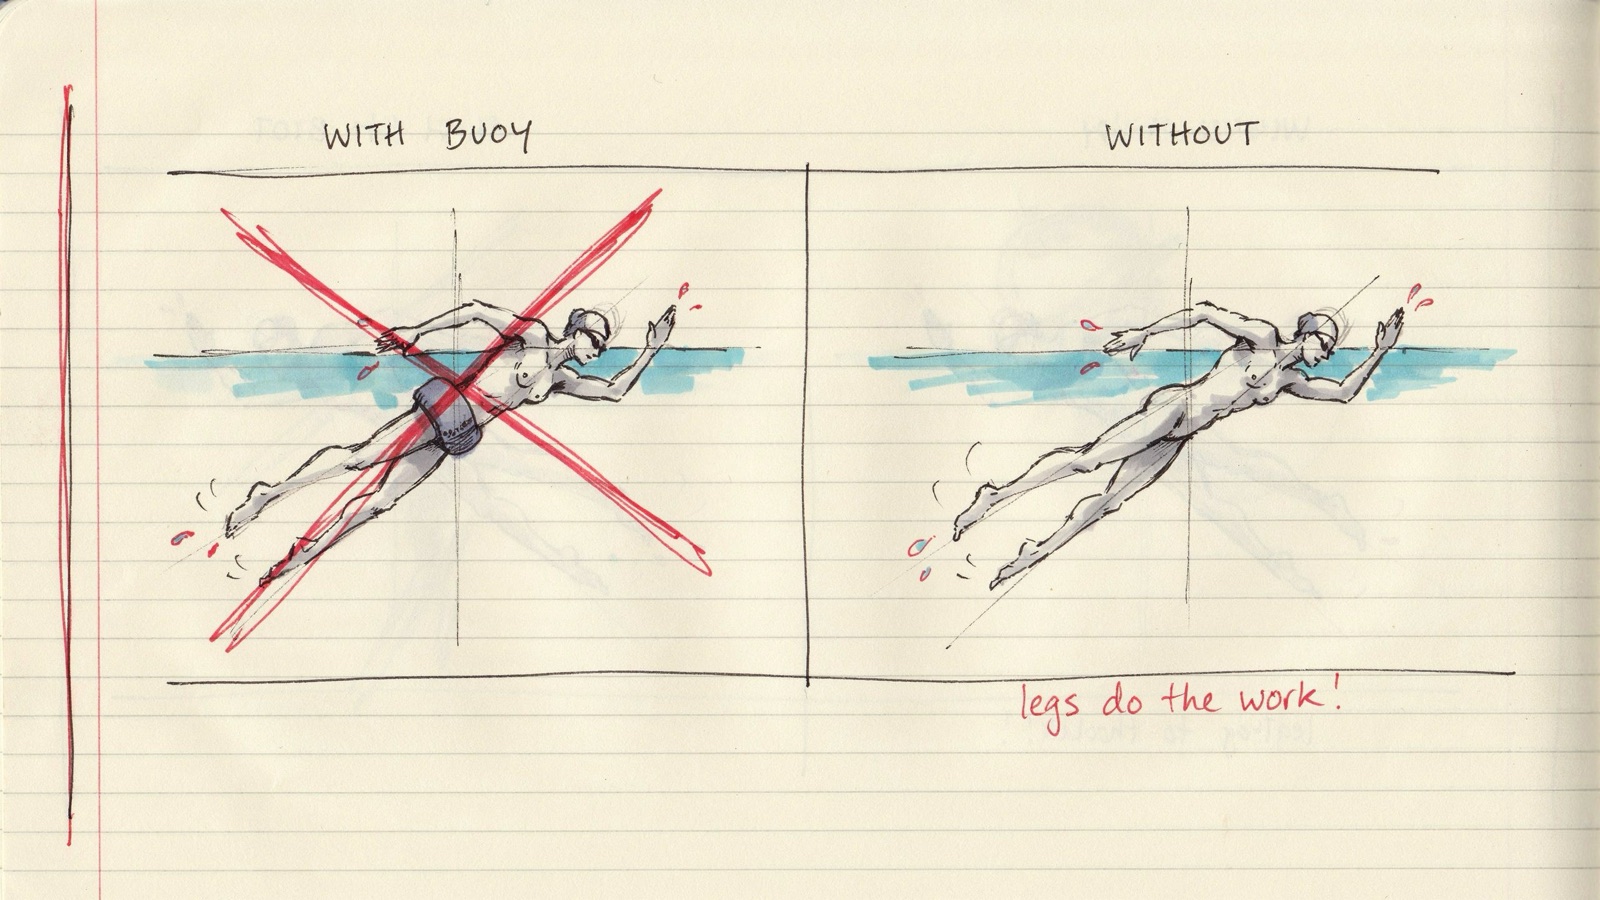 WITH BUOY
WITHOUT
legs do the work!